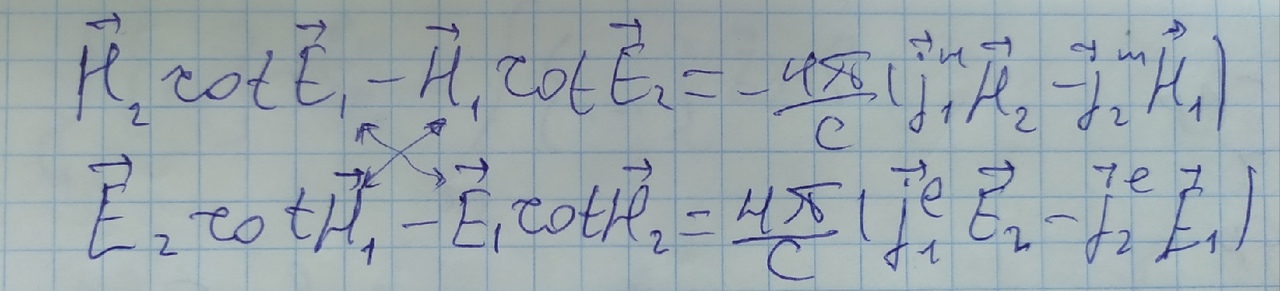 H⃗₂ rot E⃗₁ − H⃗₁ rot E⃗₂ = − 4π/c (j⃗₁ᵐ H⃗₂ − j⃗₂ᵐ H⃗₁)
E⃗₂ rot H⃗₁ − E⃗₁ rot H⃗₂ = 4π/c (j⃗₁ᵉ E⃗₂ − j⃗₂ᵉ E⃗₁)